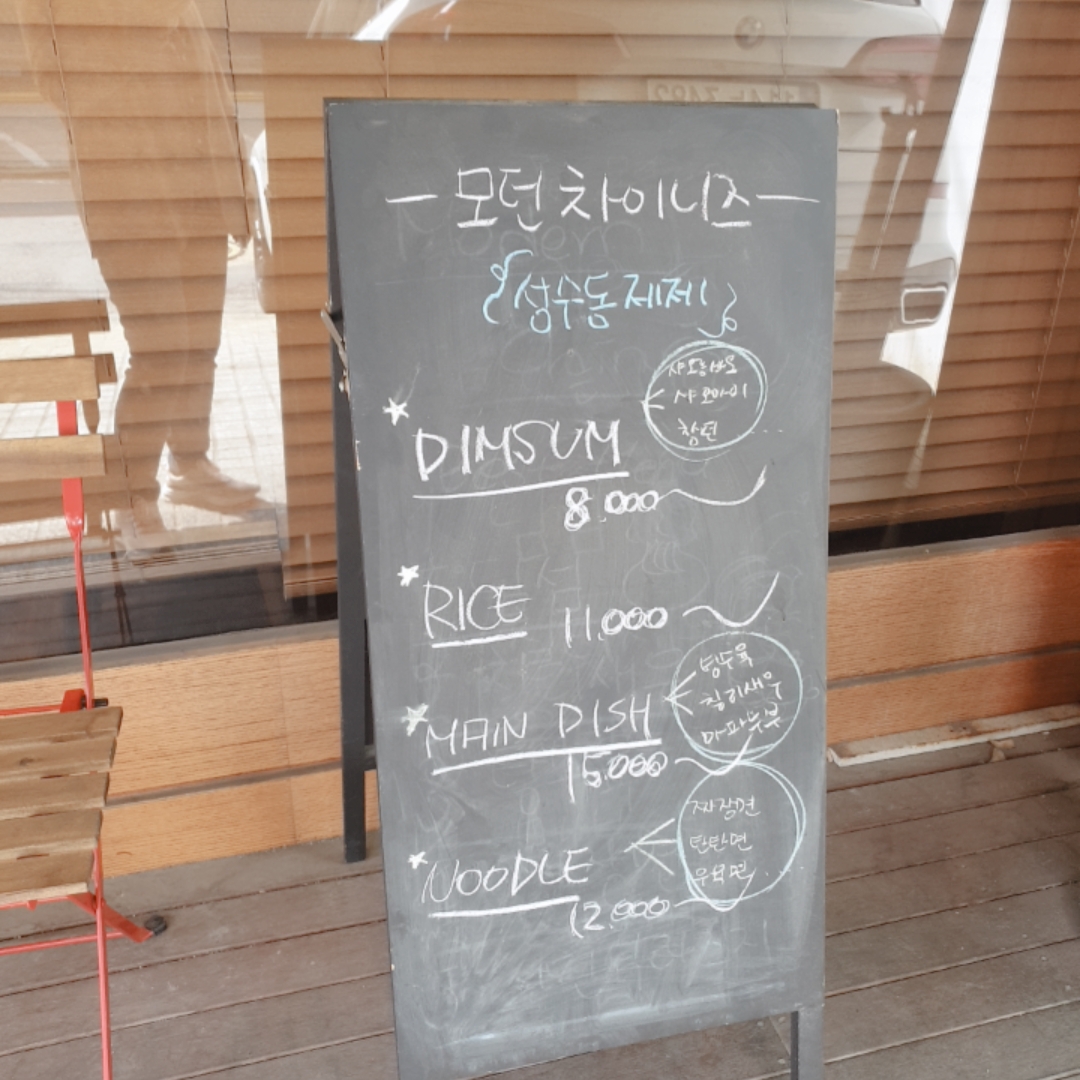 모던 차이니즈
성수동 제제
샤오롱바오
샤오마이
창펀
DIMSUM
8.000
RICE 11.000
멘보샤
칠리새우
마파두부
MAIN DISH
15.000
짜장면
탄탄면
우육면
NOODLE
12.000